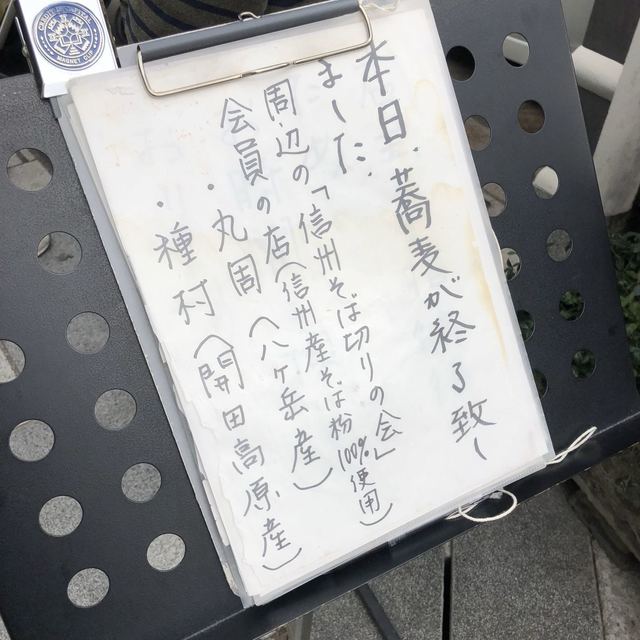 本日、蕎麦が終了致し
ました。
周辺の「信州そば切りの会」
会員の店(信州産そば粉100%使用)
・丸周(八ヶ岳産)
・種村(開田高原産)